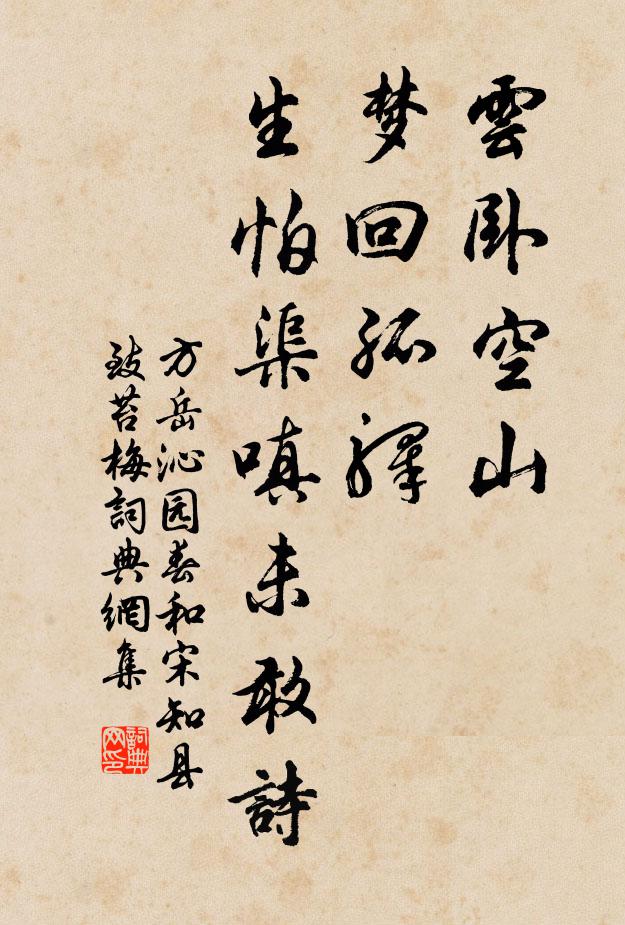 雲卧空山
梦回孤驛
生怕渠嗔未敢詩
方岳沁园春和宋知县
致苔梅詞典網集
詞典
网印